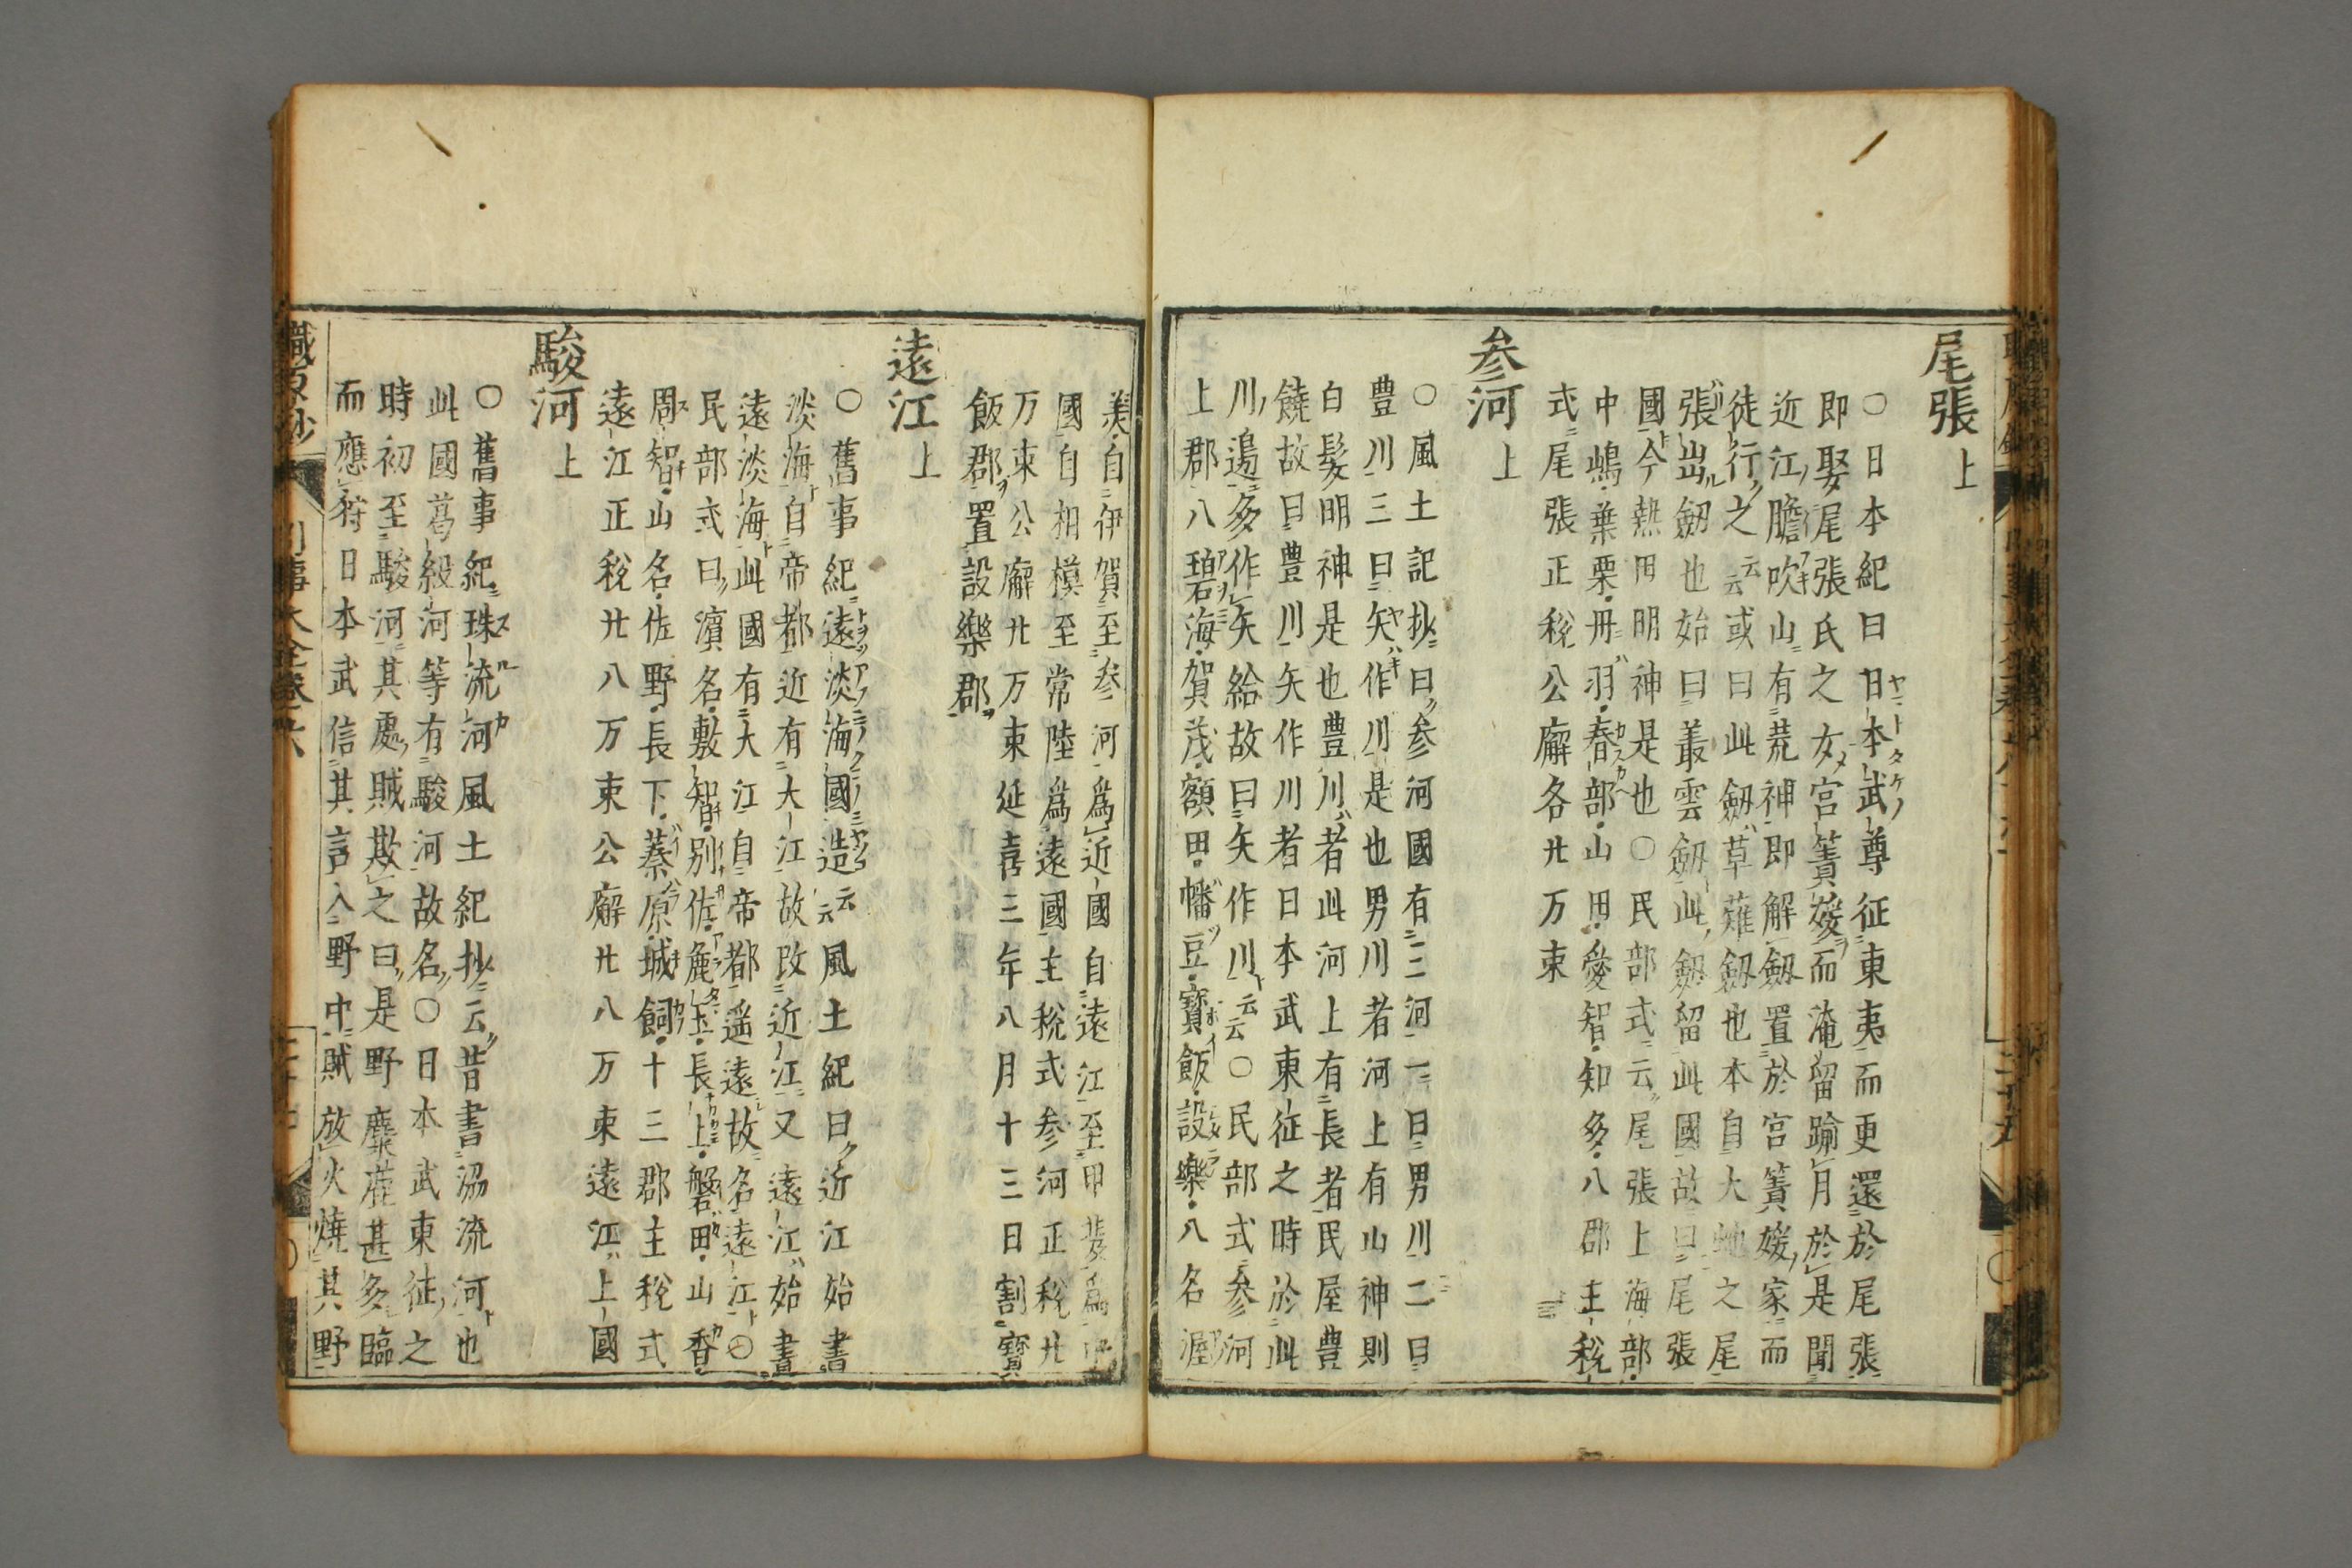 尾張上
〇日本紀曰日本武尊征東夷而更還於尾張
即娶尾張氏之女宮簀媛而淹留踰月於是聞
近江膽吹山有荒神即解劔置於宮簀媛家而
徒行之云云或曰此劔草薙劔也本自大虵之尾
張出劔也始曰叢雲劔此劔留此國故曰尾張
國今熱田明神是也〇民部式云尾張上海部
中嶋葉栗丹羽春部山田愛智知多八郡主稅
式尾張正稅公廨各廿万束
参河上
〇風土記抄曰参河國有三河一曰男川二曰
豊川三曰矢作川是也男川者河上有山神則
白髮明神是也豊川者此河上有長者民屋豊
饒故曰豊川矢作川者日本武東征之時於此
川邉多作矢給故曰矢作川云云〇民部式参河
上郡八碧海賀茂額田幡豆寳飯設樂八名渥
美自伊賀至参河爲近國自遠江至甲斐爲
國自相模至常陸爲遠國主稅式参河正稅廿
万束公廨廿万束延喜三年八月十三日割寳
飯郡置設樂郡
遠江上
〇舊事紀遠淡海國造云云風土紀曰近江始書
淡海自帝都近有大江故改近江又遠江始書
遠淡海此國有大江自帝都遥遠故名遠江〇
民部式曰濵名敷智別佐麁玉長上磐田山香
周智山名佐野長下蓁原城飼十三郡主稅式
遠江正稅廿八万束公廨廿八万束遠江上國
駿河上
〇舊事紀珠流河風土紀抄云昔書洲流河也
此國葛綴河等有駿河故名〇日本武東征之
時初至駿河其處賊欺之曰是野麋麈甚多臨
而應狩日本武信其言入野中賊放火燒其野
職原抄 引事大全卷六